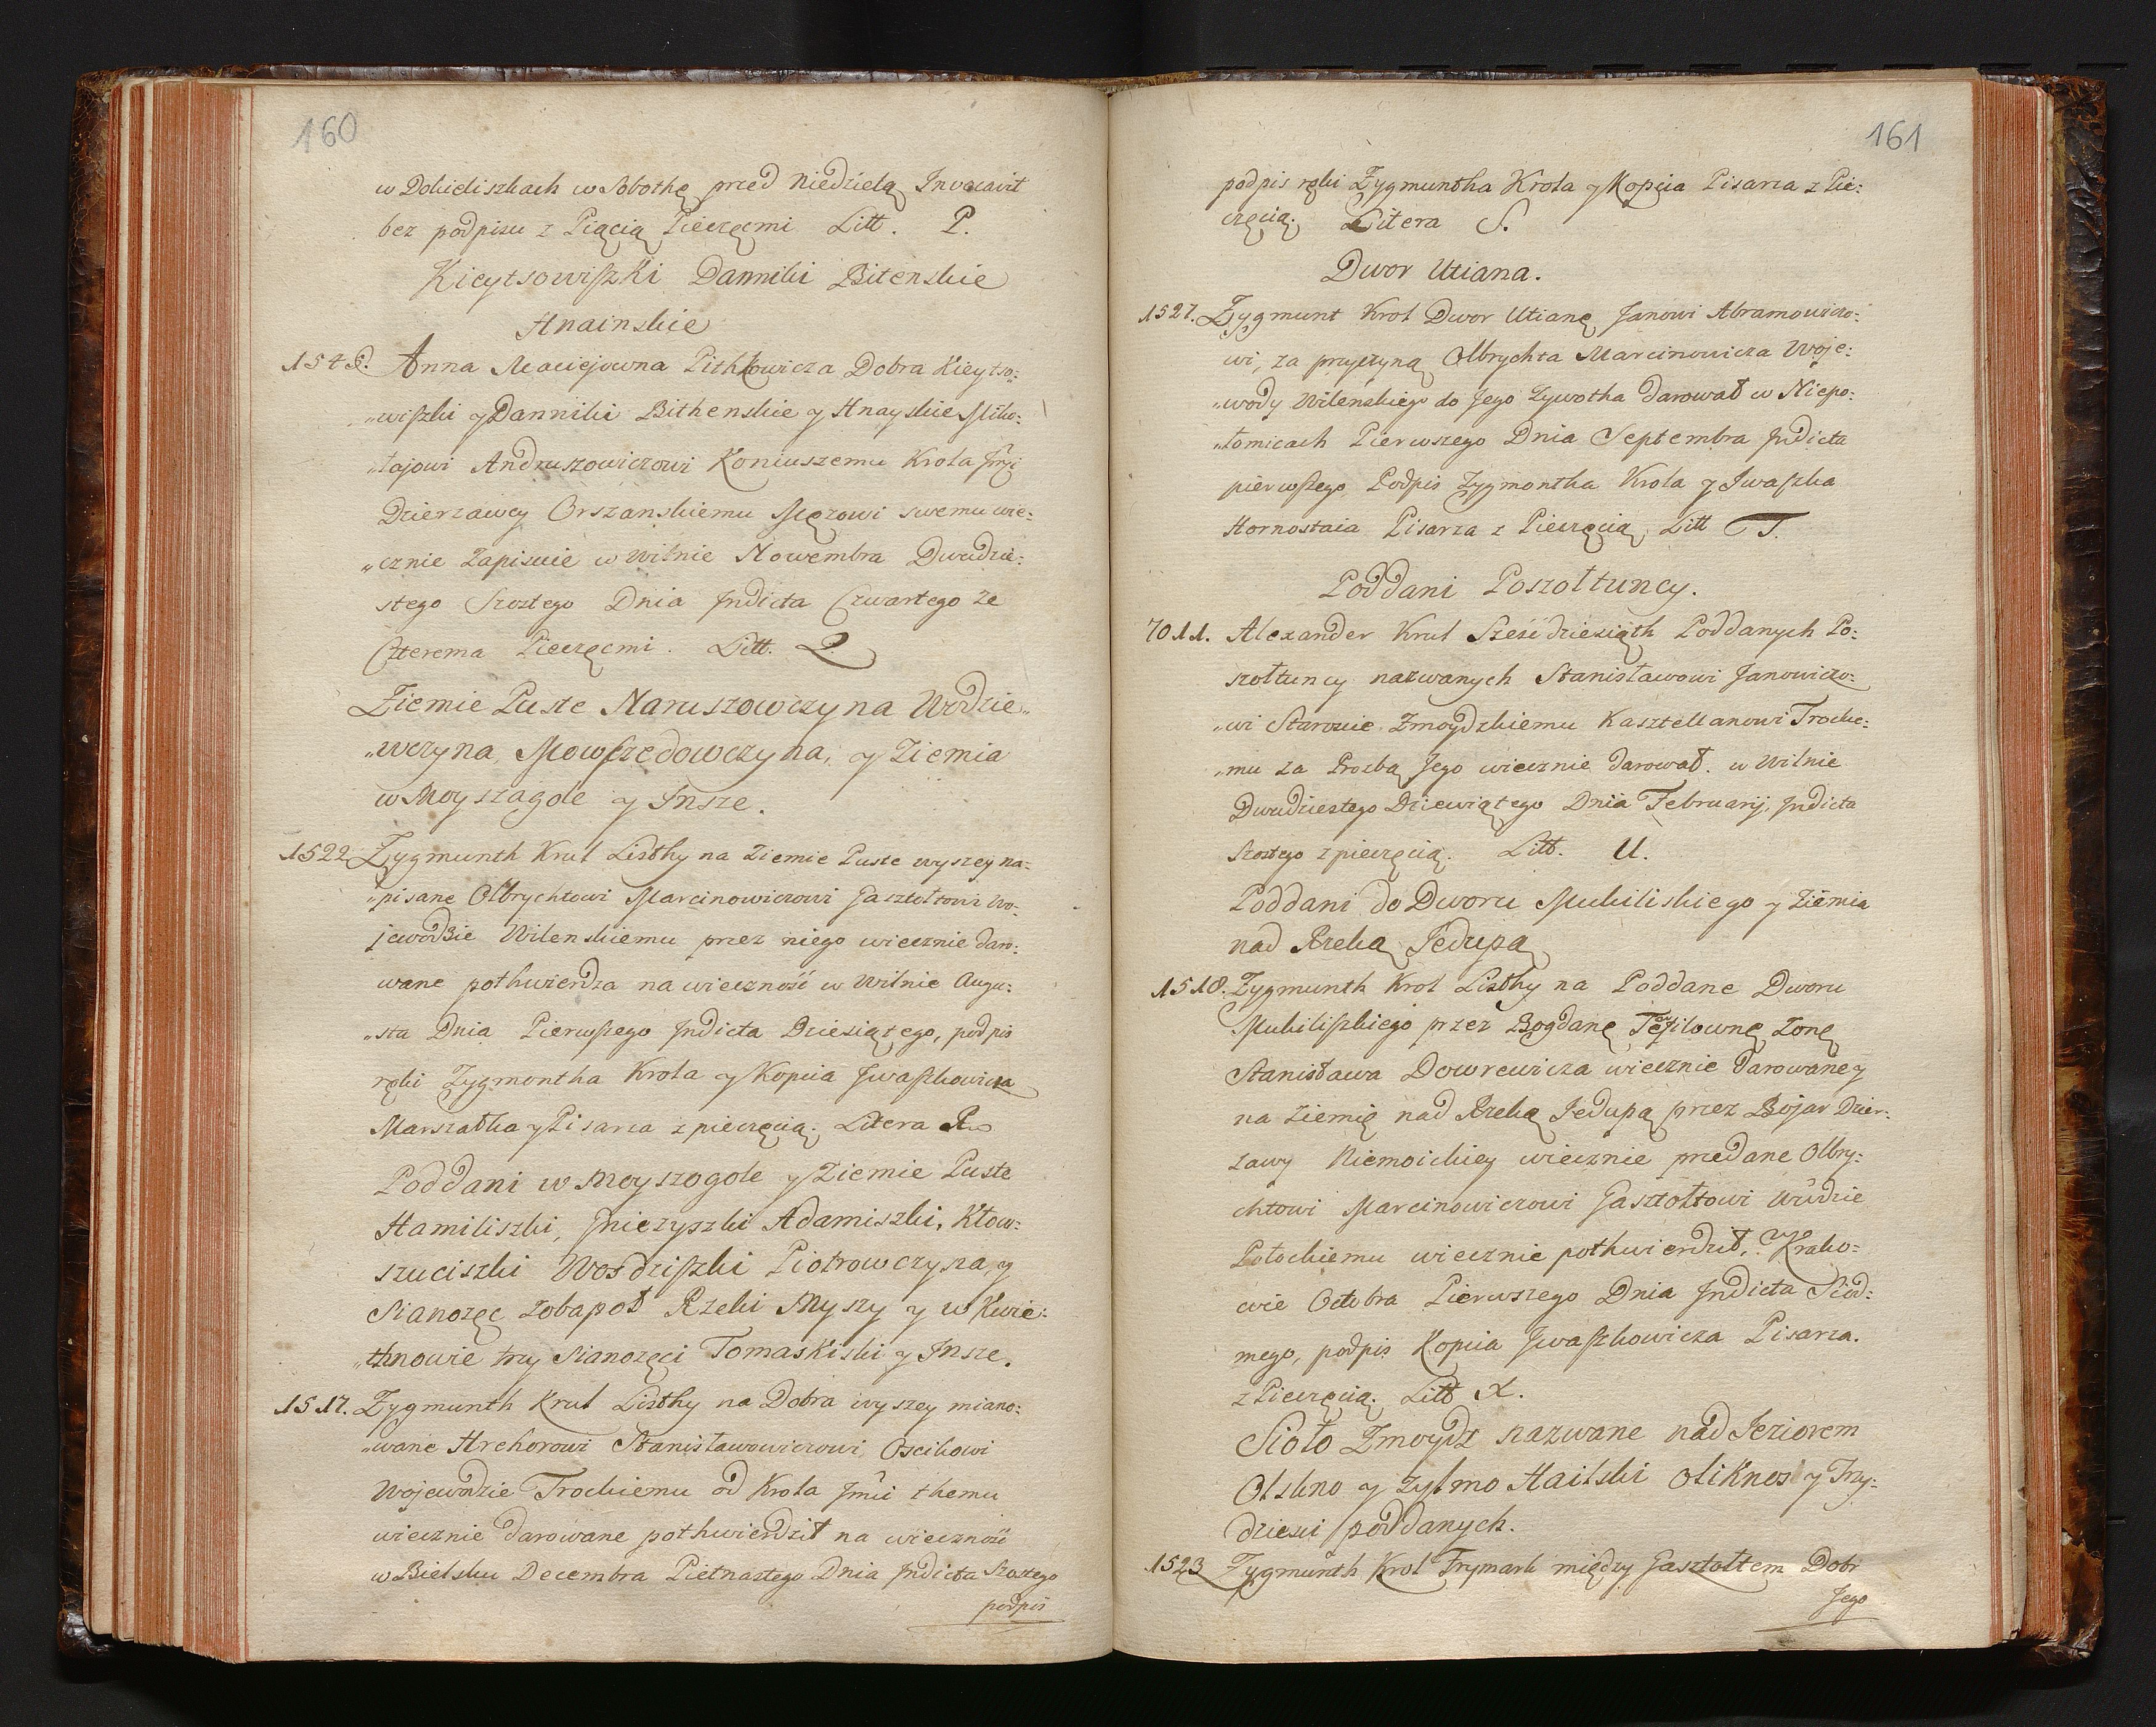 160
w Dokieliszkach w Sobothę przed Niedzielą Invocavit
bez podpisu z Piącią Pieczęcmi Litt. P.
Kicytsowiszki Danniki Bitenskie
Hnainskie
Anna Maciejowna Pithkowicza Dobra Kieytso:
„wiszki y Danniki Bithenskie y Hnayskie Miko:
„łajowi Andruszowiczowi Koniuszemu Krola Jmći
Dzierzawcy Orszanskiemu Męzowi swemu wie:
„cznie Zapisuie w Wilnie Nowembra Dwudzie:
stego Szostego Dnia Indicta Czwartego Ze
Czterema Pieczęcmi. Litt. Q.
Ziemie Puste Naruszowczyna Wodzie„
„wczyna, Mowszedowczyna, y Ziemia
w Moyszagole y Insze.
1522 Zygmunth Krul Listhy na Ziemie Puste wyszey na:
„pisane Olbrychtowi Marcinowiczowi Gasztołtowi Wo:
jewodzie Wilenskiemu przez niego wiecznie daro:
wane pothwierdza na wieczność w Wilnie Augu:
„sta Dnia Pierwszego Indicta Dziesiątego, podpis
ręki Zygmontha Krola y Kopcia Jwaszkowicza
Marszałka y Pisarza z pieczęcią. Litera R.
Poddani w Moyszogole y Ziemie Puste
Hamiliszki, Jniezyszki Adamiszki, Kłow:
szuciszki Wosdziszki Piotrowczyna, y
Sianozęc zobapoł Rzeki Myszy y w Kwie:
„thnowie trzy Sianozęci Tomaskiski y Insze.
1517. Zygmunth Krul Listhy na Dobra wyszey miano:
„wane Hrehorowi Stanisławowiczowi Oscikowi
Wojewodzie Trockiemu od Krola Jmći themu
wiecznie darowane pothwierdził na wieczność
w Bielsku Decembra Pietnastego Dnia Indicta Szostego
podpis
161
podpis ręki Zygmuntha Krola y Kopcia Pisarza z Pie:
częcią. Litera S.
Dwor Utiana.
1527. Zygmunt Krol Dwor Utianę Janowi Abramowiczo:
wi, za przyczyną Olbrychta Marcinowicza Woje:
„wody Wilenskiego do Jego Zywotha darował w Niepo:
„łomicach Pierwszego Dnia Septembra Indicta
pierwszego Podpis Zygmontha Krola y Jwaszka
Hornostaia Pisarza z Pieczęcią Litt T.
Poddani Poszołtuncy.
7011. Alexander Krul Sześćdziesiąth Poddanych Po:
szołtuncy nazwanych Stanisławowi Janowiczo:
„wi Staroscie Zmoydzkiemu Kasztellanowi Trockie:
„mu za Prozbą Jego wiecznie darował. w Wilnie
Dwudziestego Dziewiątego Dnia Februarij, Indicta
Szostego z pieczęcią. Litt. U.
Poddani do Dworu Mukiliskiego y Ziemia
nad Rzeką Jedupą
1518. Zygmunth Krol Listhy na Poddane Dworu
Mukiliszkiego przez Bogdanę Tefilownę Zonę
Stanisława Dowrewicza wiecznie darowane y
na Ziemię nad Rzeką Jedupą przez Bojar Dzier:
zawy Niemoickiey wiecznie przedane Olbry:
chtowi Marcinowiczowi Gasztołtowi Wdzie
Połockiemu wiecznie pothwierdził, Krako=
wie Octobra Pierwszego Dnia Indicta Siód:
mego, podpis Kopcia Jwaszkowicza Pisarza.
z Pieczęcią. Litt X.
Sioło Zmoydz nazwane nad Jeziorem
Olskno y Zytmo Haitski Oliknos y Trzy:
dziesci poddanych.
1523 Zygmunth Krol Frymark między Gasztołtem Dobr
Jego